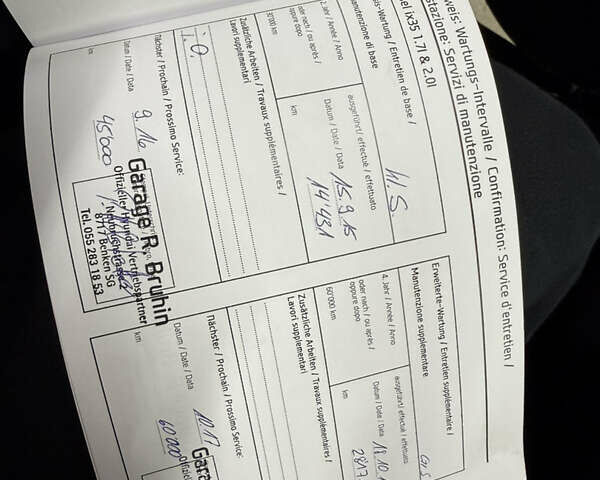 weis: Wartungs-Intervalle / Confirmation: Service d'entretien /
stazione: Servizi di manutenzione
el ix35 1.7l & 2.0l
s-Wartung / Entretien de base /
manutenzione di base
2. Jahr / Année / Anno
oder nach / ou après /
oppure dopo
30'000 km
ausgeführt / effectué / effettuato
Datum / Date / Data 15.9.15
km 14'431
Zusätzliche Arbeiten / Travaux supplémentaires /
Lavori supplementari
i.O.
Nächster / Prochain / Prossimo Service:
Datum / Date / Data 9.16
km 45'000
Garage R. Bruhin
Offizieller Hyundai Vertriebspartner
8717 Benken SG
Tel. 055 283 18 53
Erweiterte-Wartung / Entretien supplémentaire /
Manutenzione supplementare
4. Jahr / Année / Anno
oder nach / ou après /
oppure dopo
60'000 km
ausgeführt / effectué / effettuato
Datum / Date / Data 18.10.1
km 2817
Zusätzliche Arbeiten / Travaux supplémentaires /
Lavori supplementari
Nächster / Prochain / Prossimo Service:
Datum / Date / Data 10.17
km 60'000
Gara
Offiziel